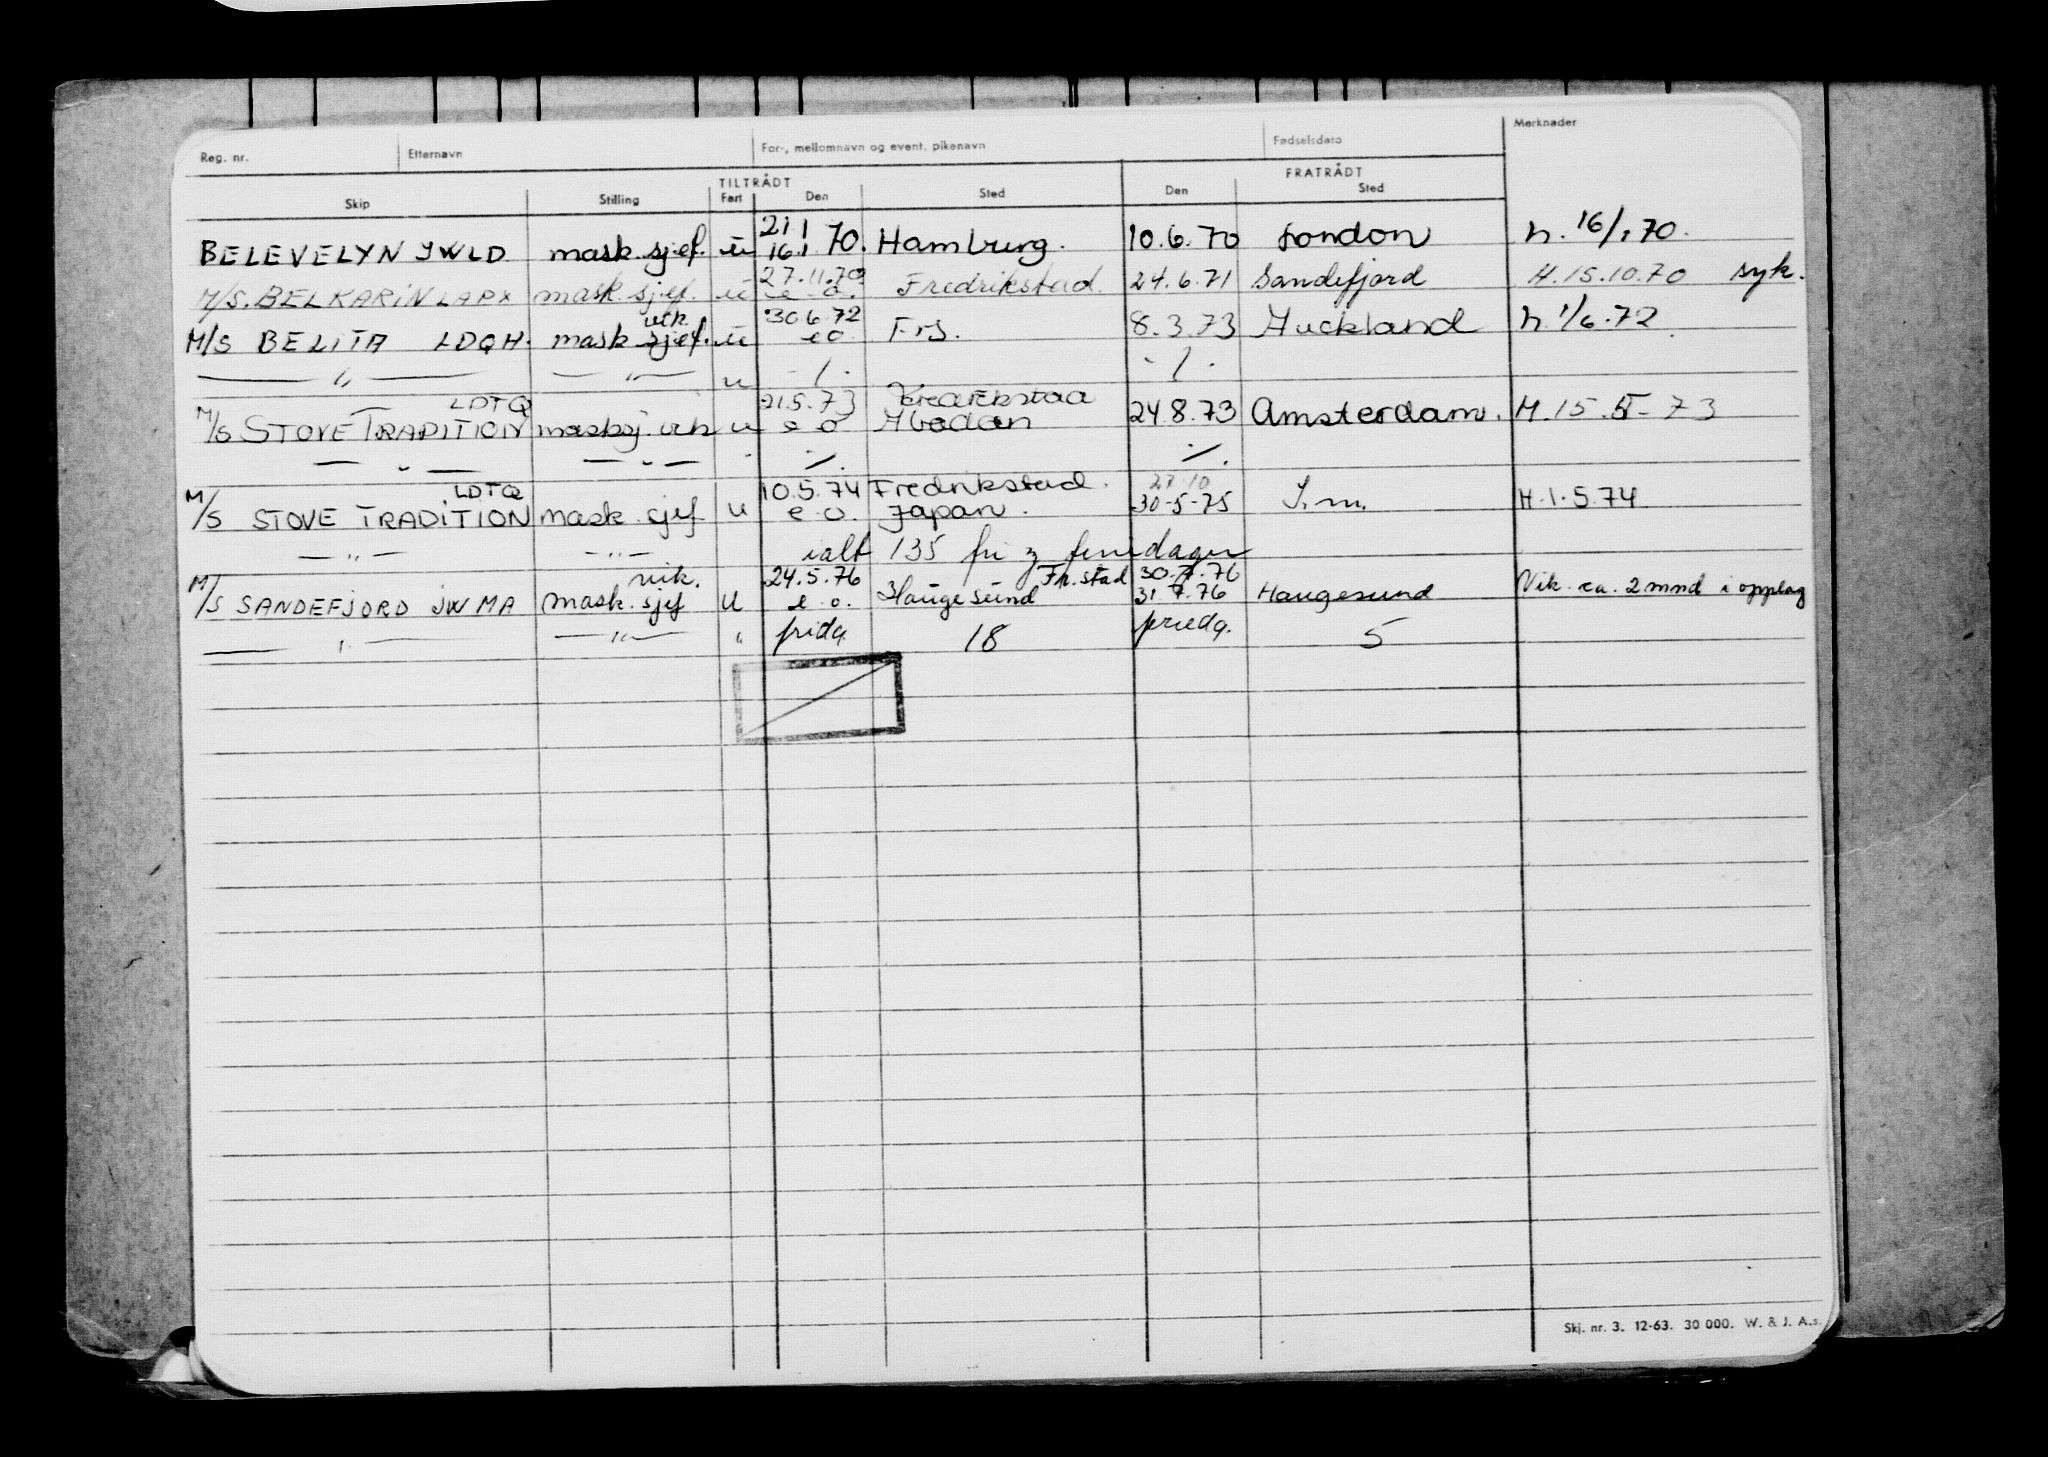 Reg. nr. Etternavn For-, mellomnavn og event. pikenavn Fødselsdato Merknader
TILTRÅDT FRATRÅDT
Skip Stilling Fart Den Sted Den Sted
21 1
BELEVELYN JWLD mask.sjef. u 16.1 70. Hamburg. 10.6.70 London h. 16/1 70.
27.11.70
M/S. BELKARIN LAPX mask.sjef. u e.o. Fredrikstad. 24.6.71 Sandefjord H.15.10.70 syk.
vik. 30 6.72
M/S BELITA LDQH. mask sjef. u eo Frs. 8.3.73 Auckland h. 1/6.72
—— " —— — " — u - / . - / .
LDTQ 21.5.73
M/S STOVE TRADITION masksj. vik u e o Abadan 24.8.73 Amsterdam. H.15.5-73
— " — — " — " /. /.
LDTQ 10.5.74 Fredrikstad. 27 10
M/S STOVE TRADITION mask. sjef u e.o. Japan. 30-5-75 S.m. H.1.5.74
— " — — " — ialt 135 fri feriedager
vik. 24.5.76 Fr.stad 30.7.76
M/S SANDEFJORD JWMA mask. sjef u e.o. Haugesund 31 7.76 Haugesund Vik. ca. 2 mnd i opplag
—— " —— — " — " fridg. 18 frieda. 5
Skj. nr. 3. 12-63. 30 000. W. & J. A.s.